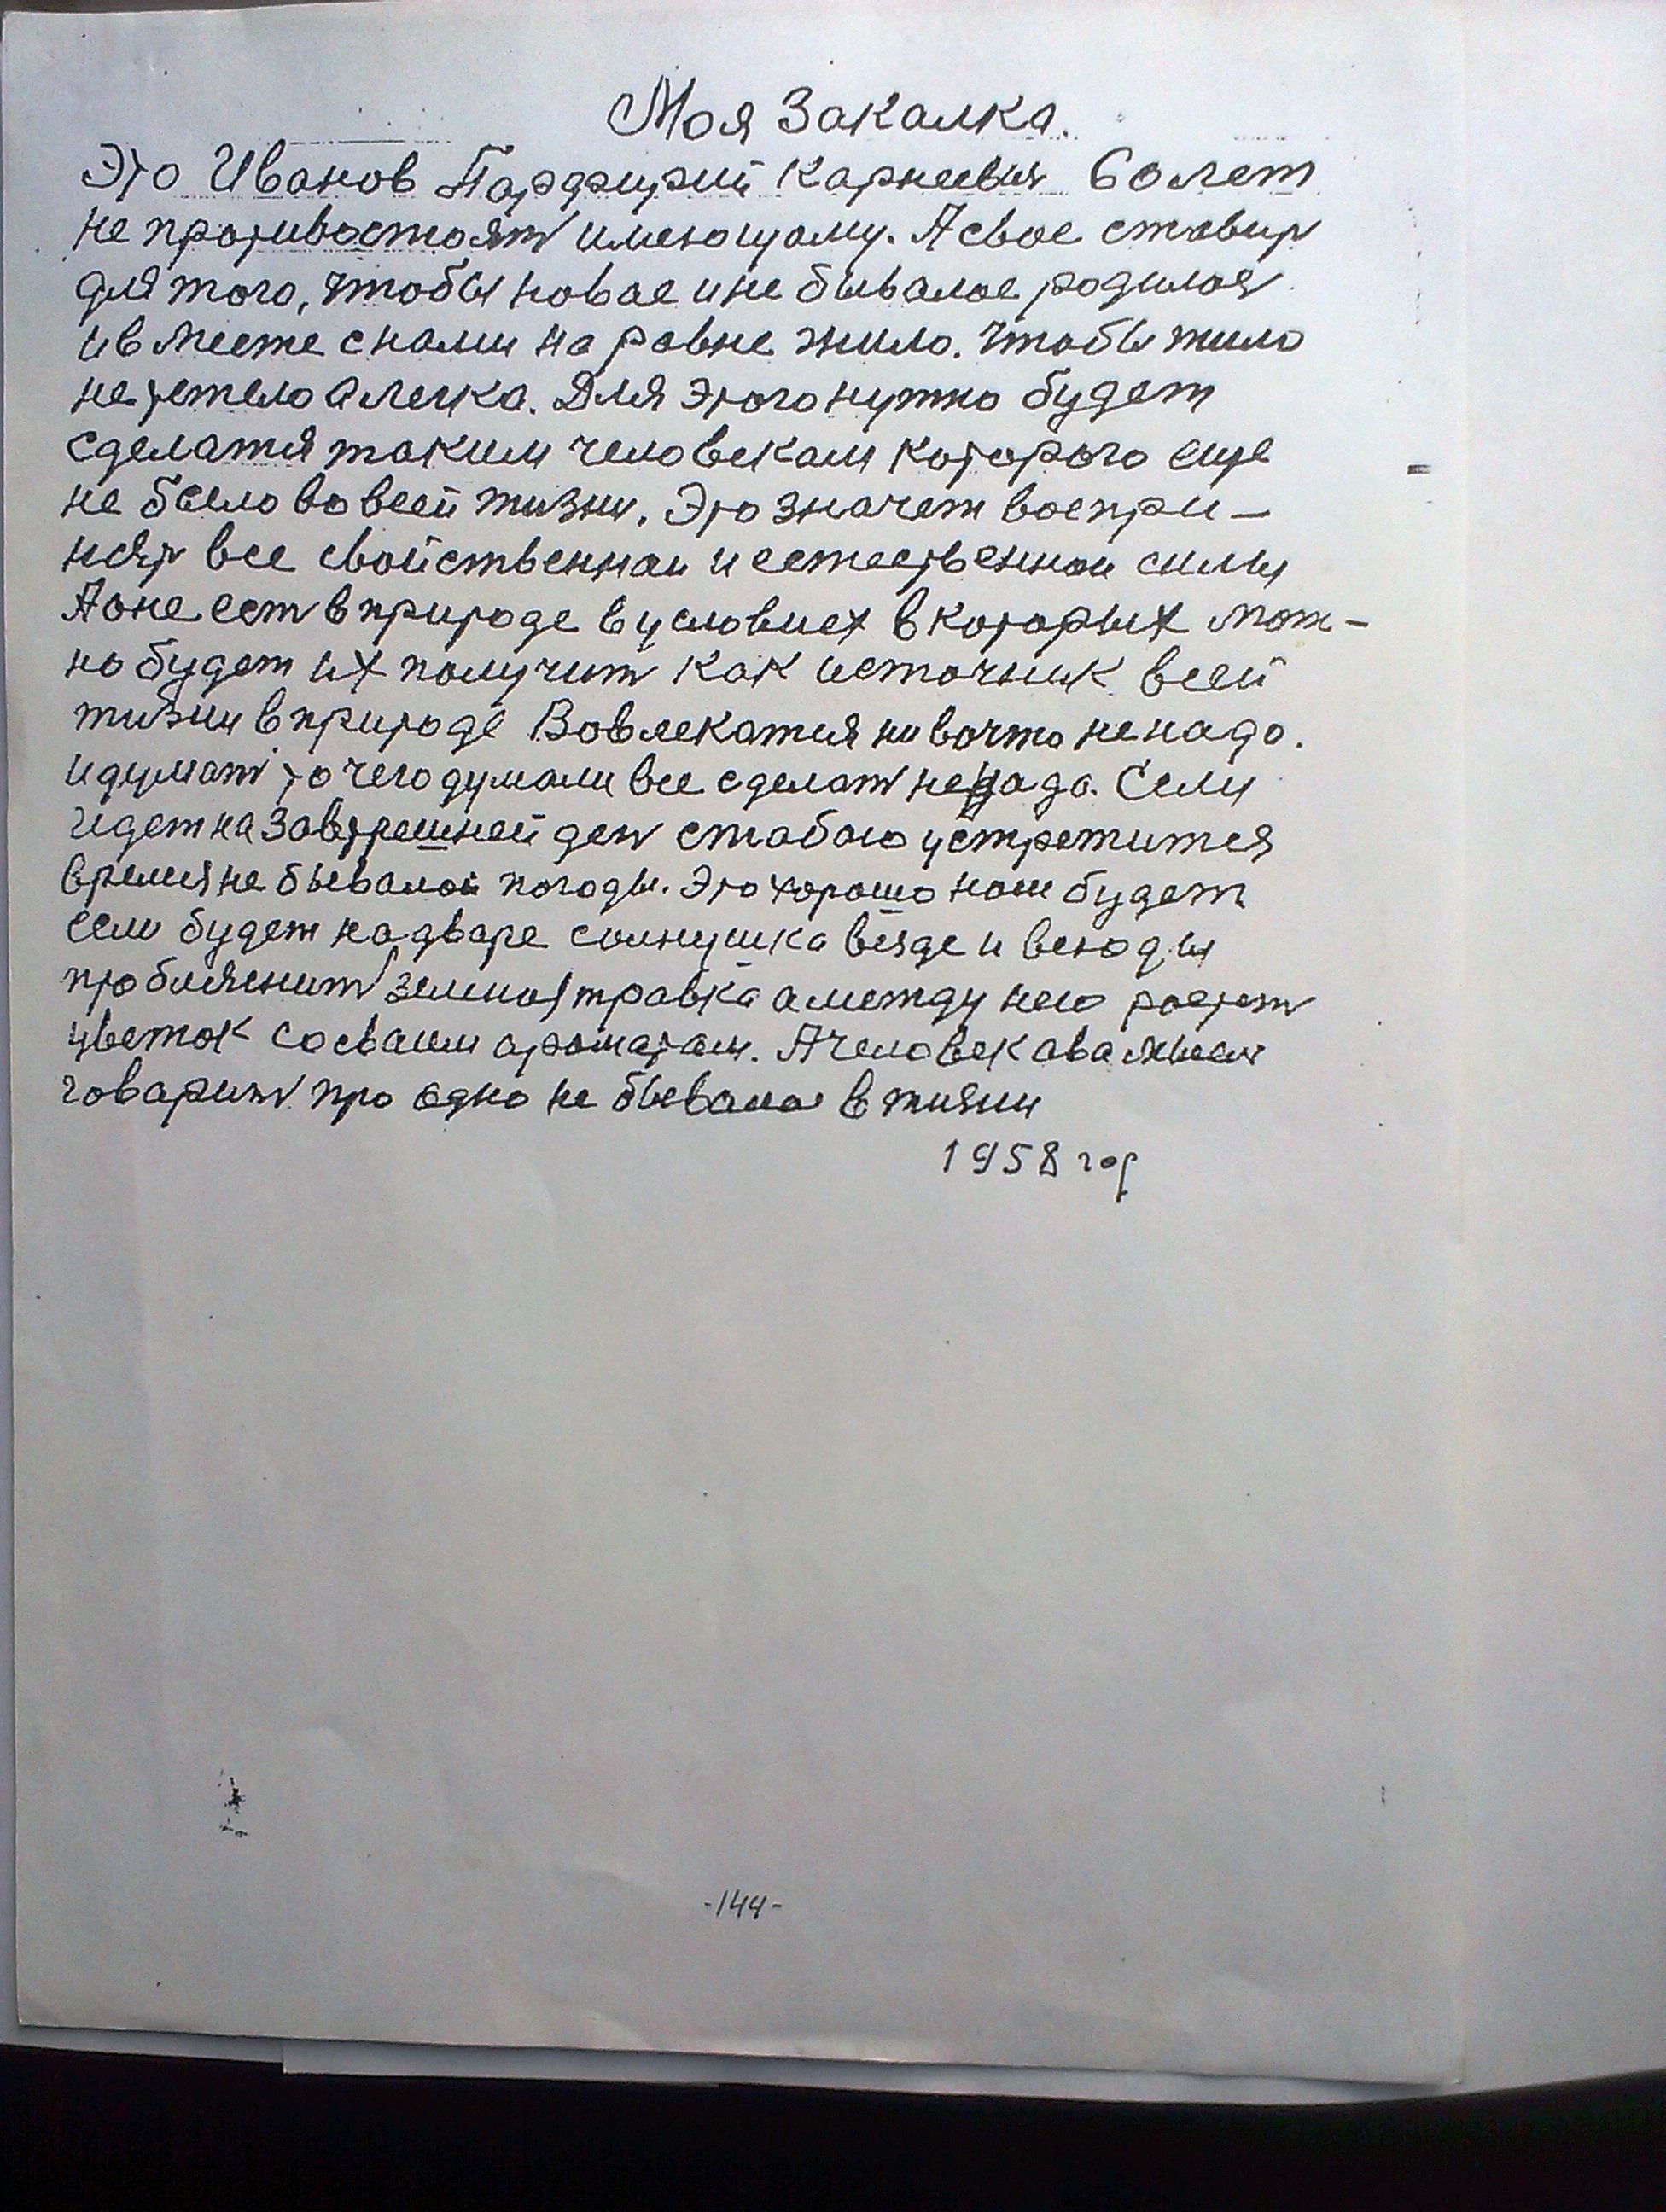 Моя Закалка.
Это Иванов Парфирий Карнеевич 60 лет
не противостоят имеющаму. А свое ставит
для того, чтобы новае и не бывалое родилося
и в месте с нами на равне жило. Чтобы жило
не тежело а легка. Для этого нужно будет
сделатся таким человекам которого еще
не было во всей жизни. Это значет воспри-
нят все свойственнаи и естественнаи силы
А оне ест в природе в условиех в которых мож-
но будет их получит как источник всей
жизни в природе Вовлекатся ни вочто не надо.
и думат то чего думали все сделат не нада. Если
идет на завтрешней ден стобою устретится
время не бывалой погоды. Это хорошо нам будет
если будет на дваре солнушка везде и всюды
зеленая травка а между нею растет
цветок со сваим араматам. А человек
говарит про одно не бывалое в жизни
1958 год
-144-